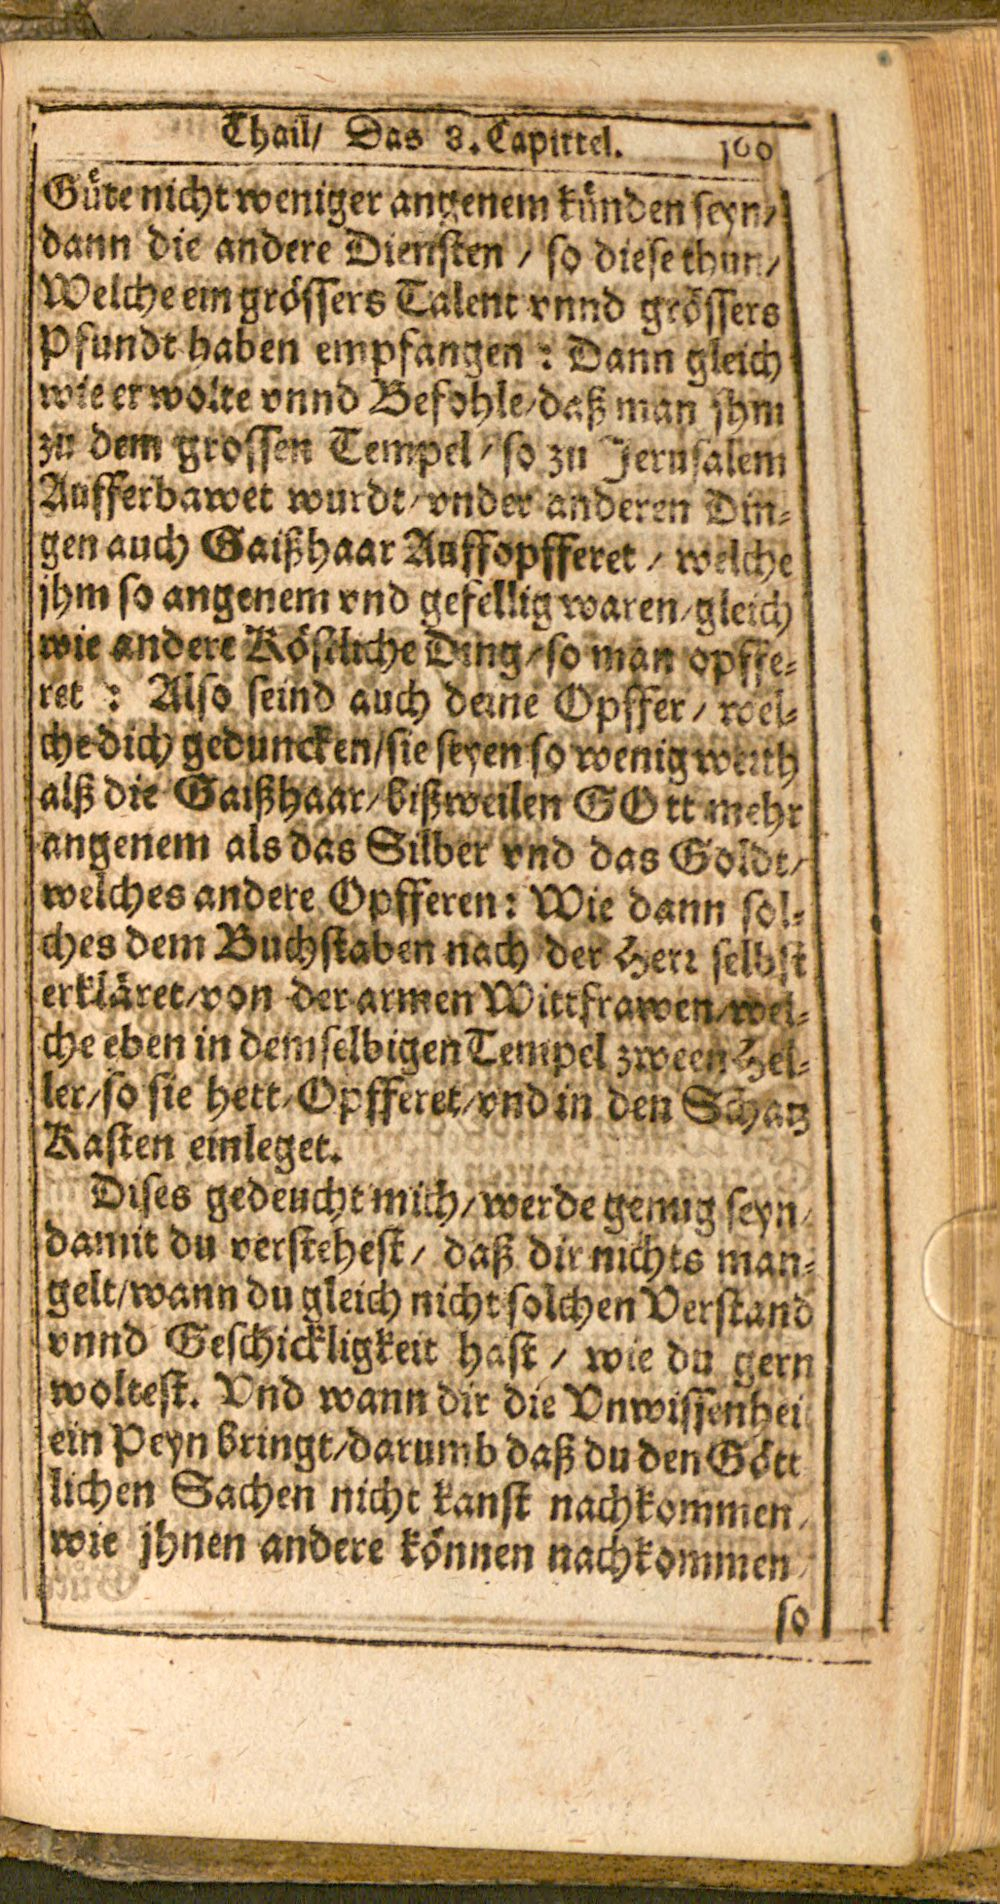 Thail/ Das 3. Capittel. 160
Güte nicht weniger angenem künden seyn/
dann die andere Diensten / so diese thun/
Welche ein grössers Talent vnnd grössers
Pfundt haben empfangen : Dann gleich
wie er wolte vnnd Befohle/ daß man jhm
zu dem grossen Tempel / so zu Jerusalem
Aufferbawet wurdt/ vnder anderen Din-
gen auch Gaißhaar Auffopfferet / welche
jhm so angenem vnd gefellig waren/ gleich
wie andere Köstliche Ding/ so man opffe-
ret : Also seind auch deine Opffer / wel-
che dich geduncken/ sie seyen so wenig werth
alß die Gaißhaar/ bißweilen GOtt mehr
angenem als das Silber vnd das Goldt/
welches andere Opfferen : Wie dann sol-
ches dem Buchstaben nach der Herr selbst
erkläret/ von der armen Wittfrawen/ wel-
che eben in demselbigen Tempel zween Hel-
ler/ so sie hett/ Opfferet/ vnd in den Schatz
Kasten einleget.
Dises gedeucht mich/ werde genug seyn/
damit du verstehest / daß dir nichts man-
gelt/ wann du gleich nicht solchen Verstand
vnnd Geschickligkeit hast / wie du gern
woltest. Vnd wann dir die Vnwissenhei
ein Peyn bringt/ darumb daß du den Gött
lichen Sachen nicht kanst nachkommen/
wie jhnen andere können nachkommen/
so